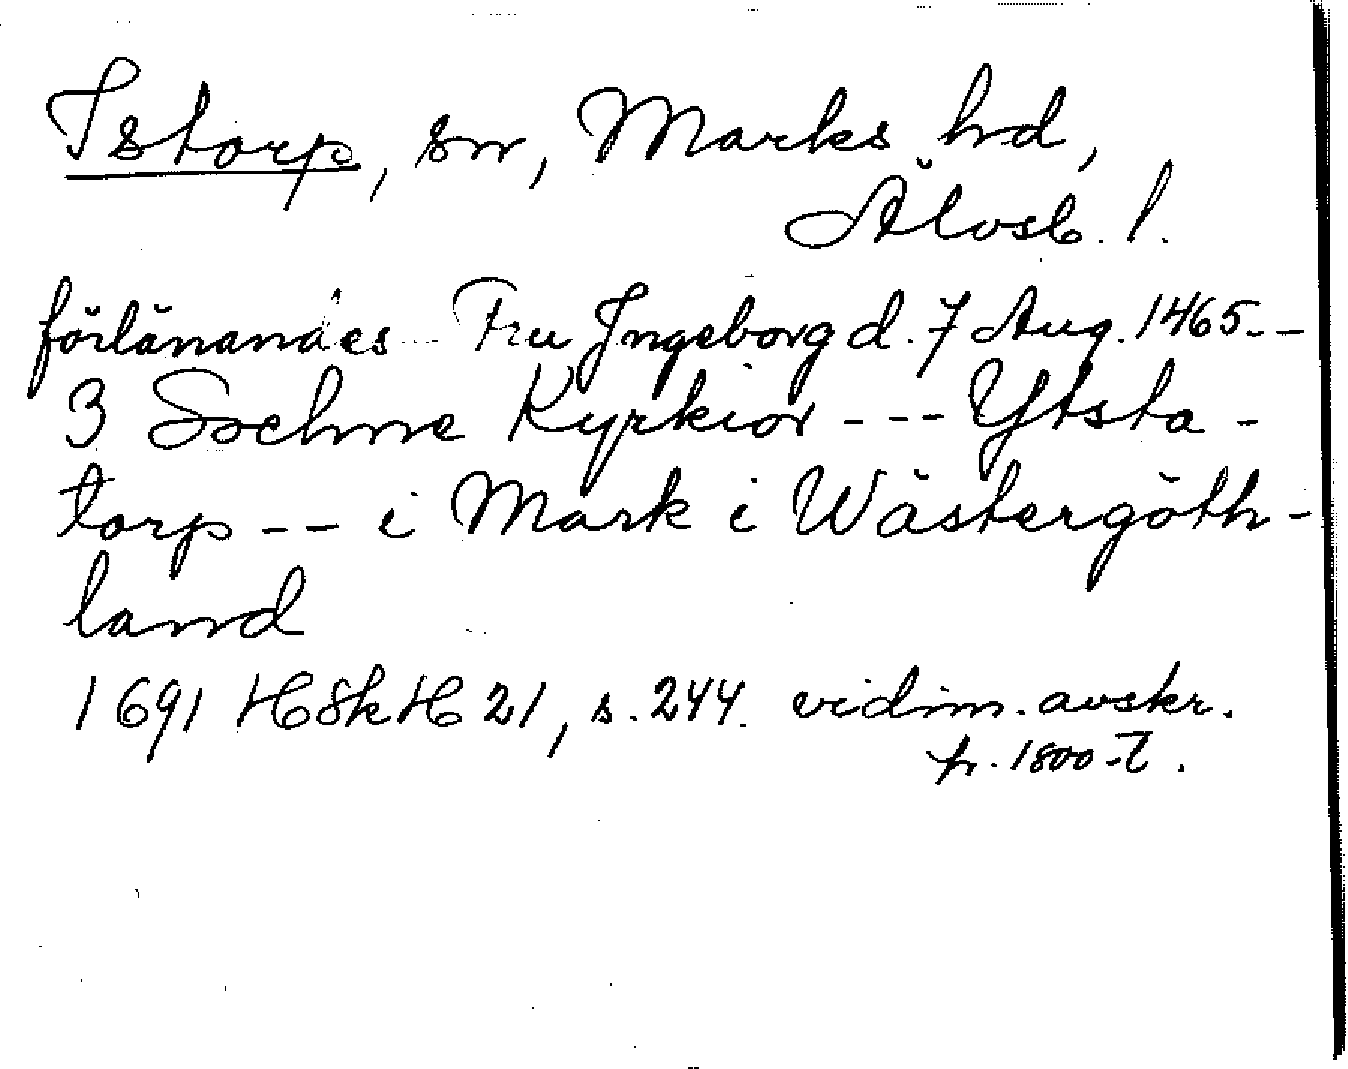 Istorp, sn, Marks hd,
Älvsb. l.
förlänandes -- Fru Ingeborg d. 7 Aug. 1465 --
3 Sochne Kyrkior --- Ytsta-
torp -- i Mark i Wästergöth-
land
1691 HSkH 21, s. 244. vidim. avskr.
fr. 1800-t.